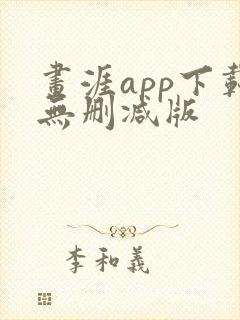 畫涯app下載
無刪減版
李和義